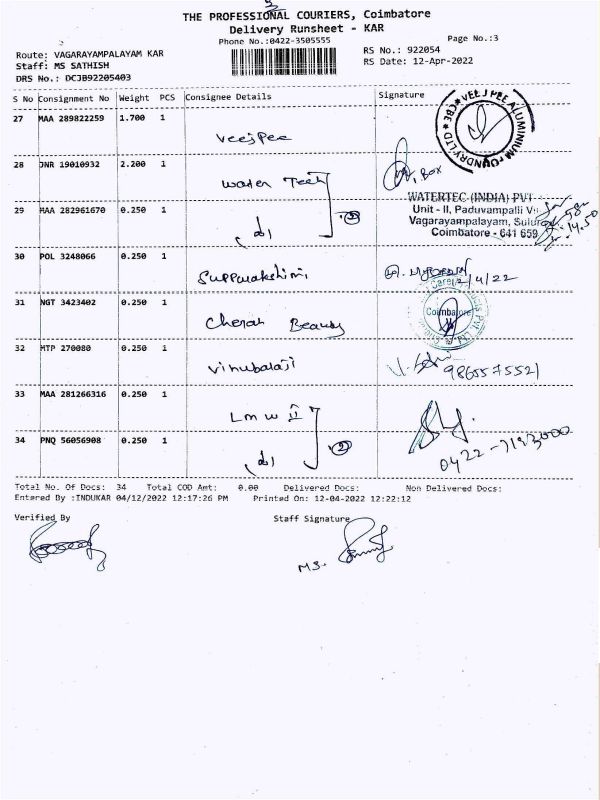 THE PROFESSIONAL COURIERS, Coimbatore
Delivery Runsheet - KAR
Phone No.:0422-3505555
Page No.:3
Route: VAGARAYAMPALAYAM KAR
RS No.: 922054
Staff: MS SATHISH
RS Date: 12-Apr-2022
DRS No.: DCJB92205403
S No Consignment No Weight PCS Consignee Details Signature
27 MAA 289822259 1.700 1
Veejpee
VEEJPEE ALUMINIUM FOUNDRY
28 JNR 19010932 2.200 1
Water Tech
, Box
WATERTEC (INDIA) PVT
29 MAA 282961670 0.250 1
Unit - II, Paduvampalli
Vagarayampalayam, Sulur
Coimbatore - 641 659
(do) 2
14.50
30 POL 3248066 0.250 1
12/4/22
31 NGT 3423402 0.250 1
Coimbatore
Cheran Beauty
32 MTP 270080 0.250 1
Vinubalaji
9865575521
33 MAA 281266316 0.250 1
Lmw II
34 PNQ 56056908 0.250 1
(do) 2
Total No. Of Docs: 34 Total COD Amt: 0.00 Delivered Docs: Non Delivered Docs:
Entered By :INDUKAR 04/12/2022 12:17:26 PM Printed On: 12-04-2022 12:22:12
Verified By
Staff Signature
MS.